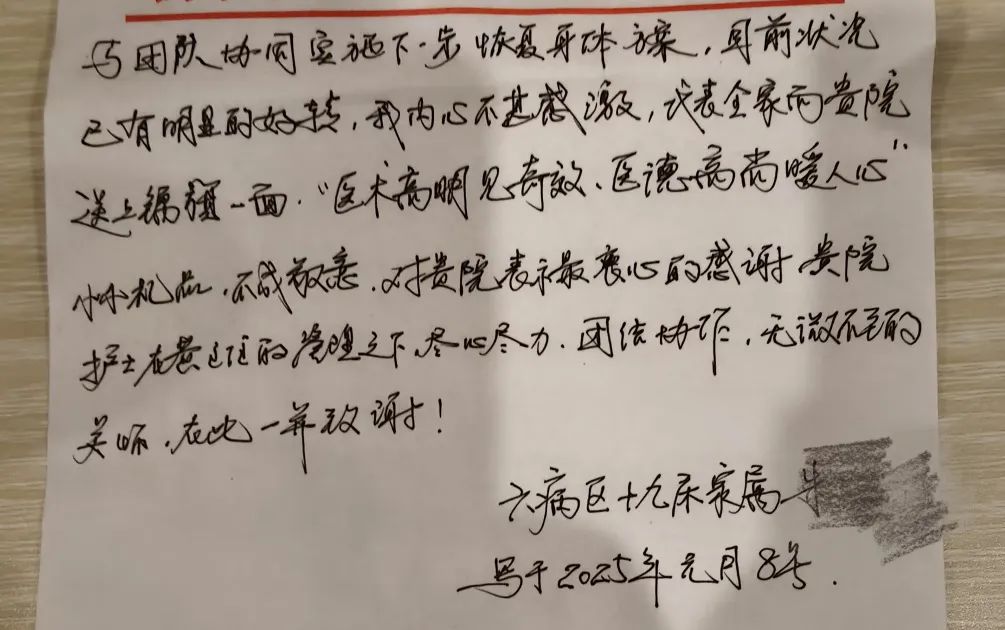 与团队协同实施下一步恢复身体方案，目前状况
已有明显的好转，我内心不甚感激，代表全家向贵院
送上锦旗一面，“医术高明见奇效、医德高尚暖人心”
小小礼品，不成敬意，对贵院表示最衷心的感谢 贵院
护士在黄主任的管理之下，尽心尽力，团结协作，无微不至的
关怀，在此一并致谢！
六病区十九床家属
写于2025年元月8号.